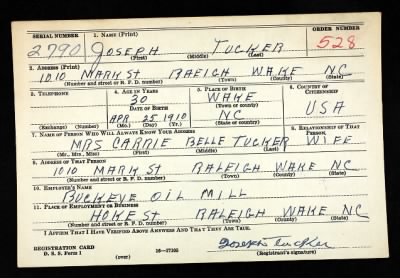 SERIAL NUMBER 1. NAME (Print) ORDER NUMBER
2790 JOSEPH TUCKER 528
(First) (Middle) (Last)
2. ADDRESS (Print)
1010 MARK ST RALEIGH WAKE NC
(Number and street or R. F. D. number) (Town) (County) (State)
3. TELEPHONE 4. AGE IN YEARS 5. PLACE OF BIRTH 6. COUNTRY OF CITIZENSHIP
30 WAKE
DATE OF BIRTH (Town or county) USA
APR 25 1910 NC
(Exchange) (Number) (Mo.) (Day) (Yr.) (State or country)
7. NAME OF PERSON WHO WILL ALWAYS KNOW YOUR ADDRESS 8. RELATIONSHIP OF THAT PERSON
MRS CARRIE BELLE TUCKER WIFE
(Mr., Mrs., Miss) (First) (Middle) (Last)
9. ADDRESS OF THAT PERSON
1010 MARK ST RALEIGH WAKE NC
(Number and street or R. F. D. number) (Town) (County) (State)
10. EMPLOYER'S NAME
BUCKEYE OIL MILL
11. PLACE OF EMPLOYMENT OR BUSINESS
HOKE St RALEIGH WAKE NC
(Number and street or R. F. D. number) (Town) (County) (State)
I AFFIRM THAT I HAVE VERIFIED ABOVE ANSWERS AND THAT THEY ARE TRUE.
REGISTRATION CARD Joseph Tucker
D. S. S. Form 1 (over) 16—17105 (Registrant's signature)